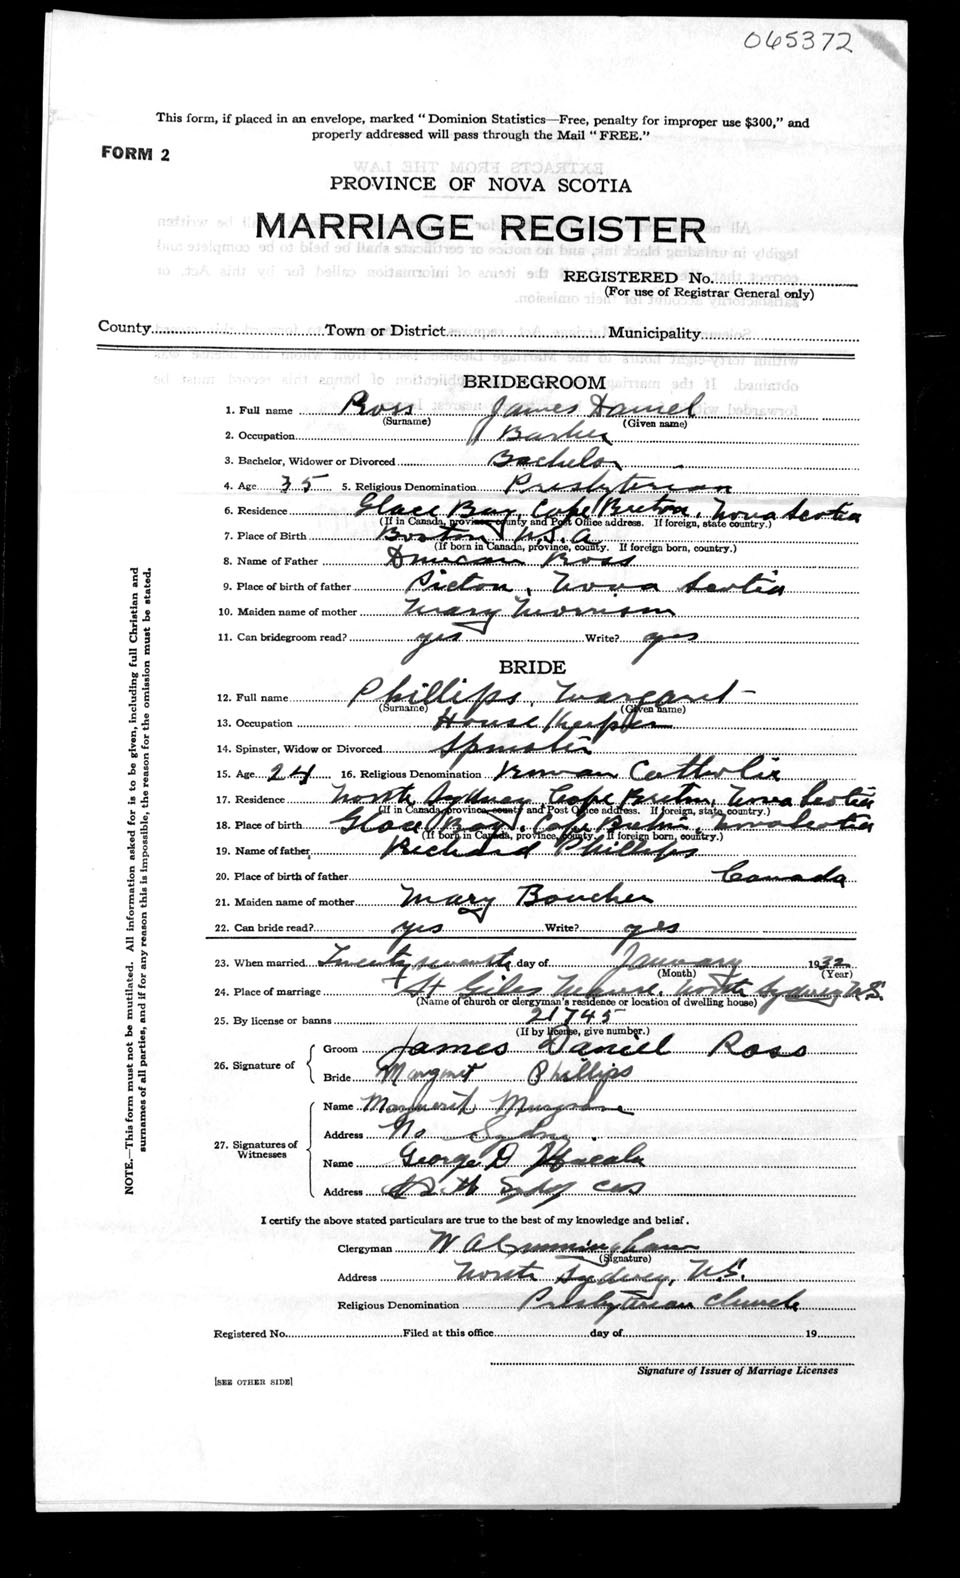 065372
This form, if placed in an envelope, marked "Dominion Statistics—Free, penalty for improper use $300," and
properly addressed will pass through the Mail "FREE."
FORM 2
PROVINCE OF NOVA SCOTIA
MARRIAGE REGISTER
REGISTERED No.
(For use of Registrar General only)
County Town or District Municipality
BRIDEGROOM
1. Full name Ross James Daniel
(Surname) (Given name)
2. Occupation Barber
3. Bachelor, Widower or Divorced Bachelor
4. Age 35 5. Religious Denomination Presbyterian
6. Residence Glace Bay, Cape Breton, Nova Scotia
(If in Canada, province, county and Post Office address. If foreign, state country.)
7. Place of Birth Boston U.S.A
(If born in Canada, province, county. If foreign born, country.)
8. Name of Father Duncan Ross
9. Place of birth of father Pictou, Nova Scotia
10. Maiden name of mother Mary Morrison
11. Can bridegroom read? yes Write? yes
BRIDE
12. Full name Phillips, Margaret
(Surname) (Given name)
13. Occupation House Keeper
14. Spinster, Widow or Divorced Spinster
15. Age 24 16. Religious Denomination Roman Catholic
17. Residence North Sydney Cape Breton, Nova Scotia
(If in Canada, province, county and Post Office address. If foreign, state country.)
18. Place of birth Glace Bay, Cape Breton, Nova Scotia
(If born in Canada, province, county. If foreign born, country.)
19. Name of father, Richard Phillips
20. Place of birth of father Canada
21. Maiden name of mother Mary Boucher
22. Can bride read? yes Write? yes
23. When married Twenty seventh day of January 1932
(Month) (Year)
24. Place of marriage St Giles Manse, North Sydney N.S.
(Name of church or clergyman's residence or location of dwelling house)
25. By license or banns 21745
(If by license, give number.)
26. Signature of
Groom James Daniel Ross
Bride Margaret Phillips
27. Signatures of Witnesses
Name Marguerite Musgrave
Address No Sydney.
Name George D
Address Sydney
I certify the above stated particulars are true to the best of my knowledge and belief.
Clergyman W A Cunningham
(Signature)
Address North Sydney, N.S.
Religious Denomination Presbyterian Church
Registered No. Filed at this office day of 19
Signature of Issuer of Marriage Licenses
[SEE OTHER SIDE]
NOTE.—This form must not be mutilated. All information asked for is to be given, including full Christian and
surnames of all parties, and if for any reason this is impossible, the reason for the omission must be stated.